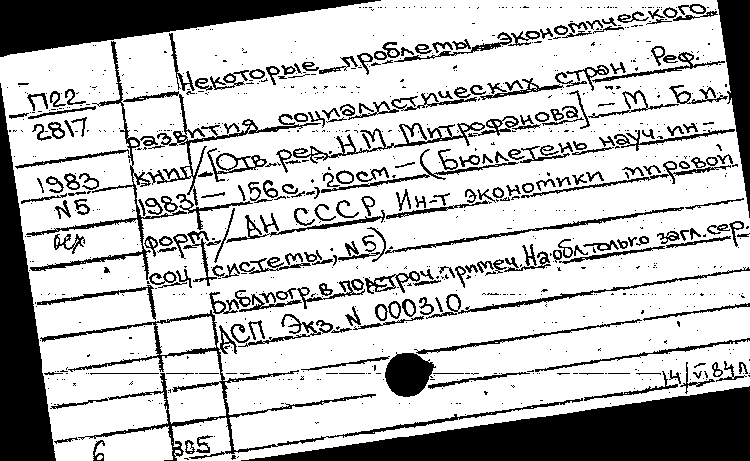 Некоторые проблемы экономического
П22
2817
развития социалистических стран. Реф.
1983
N5
книг / [Отв. ред. Н.М. Митрофанова] - М. Б.и.,
1983 - 156с.; 20см. - (Бюллетень науч. ин-
форм. / АН СССР, Ин-т экономики мировой
соц. системы; N5).
Библиогр. в подстроч. примеч. На обл. только загл. сер.
ДСП Экз. N 000310
14/VI 84
6
385